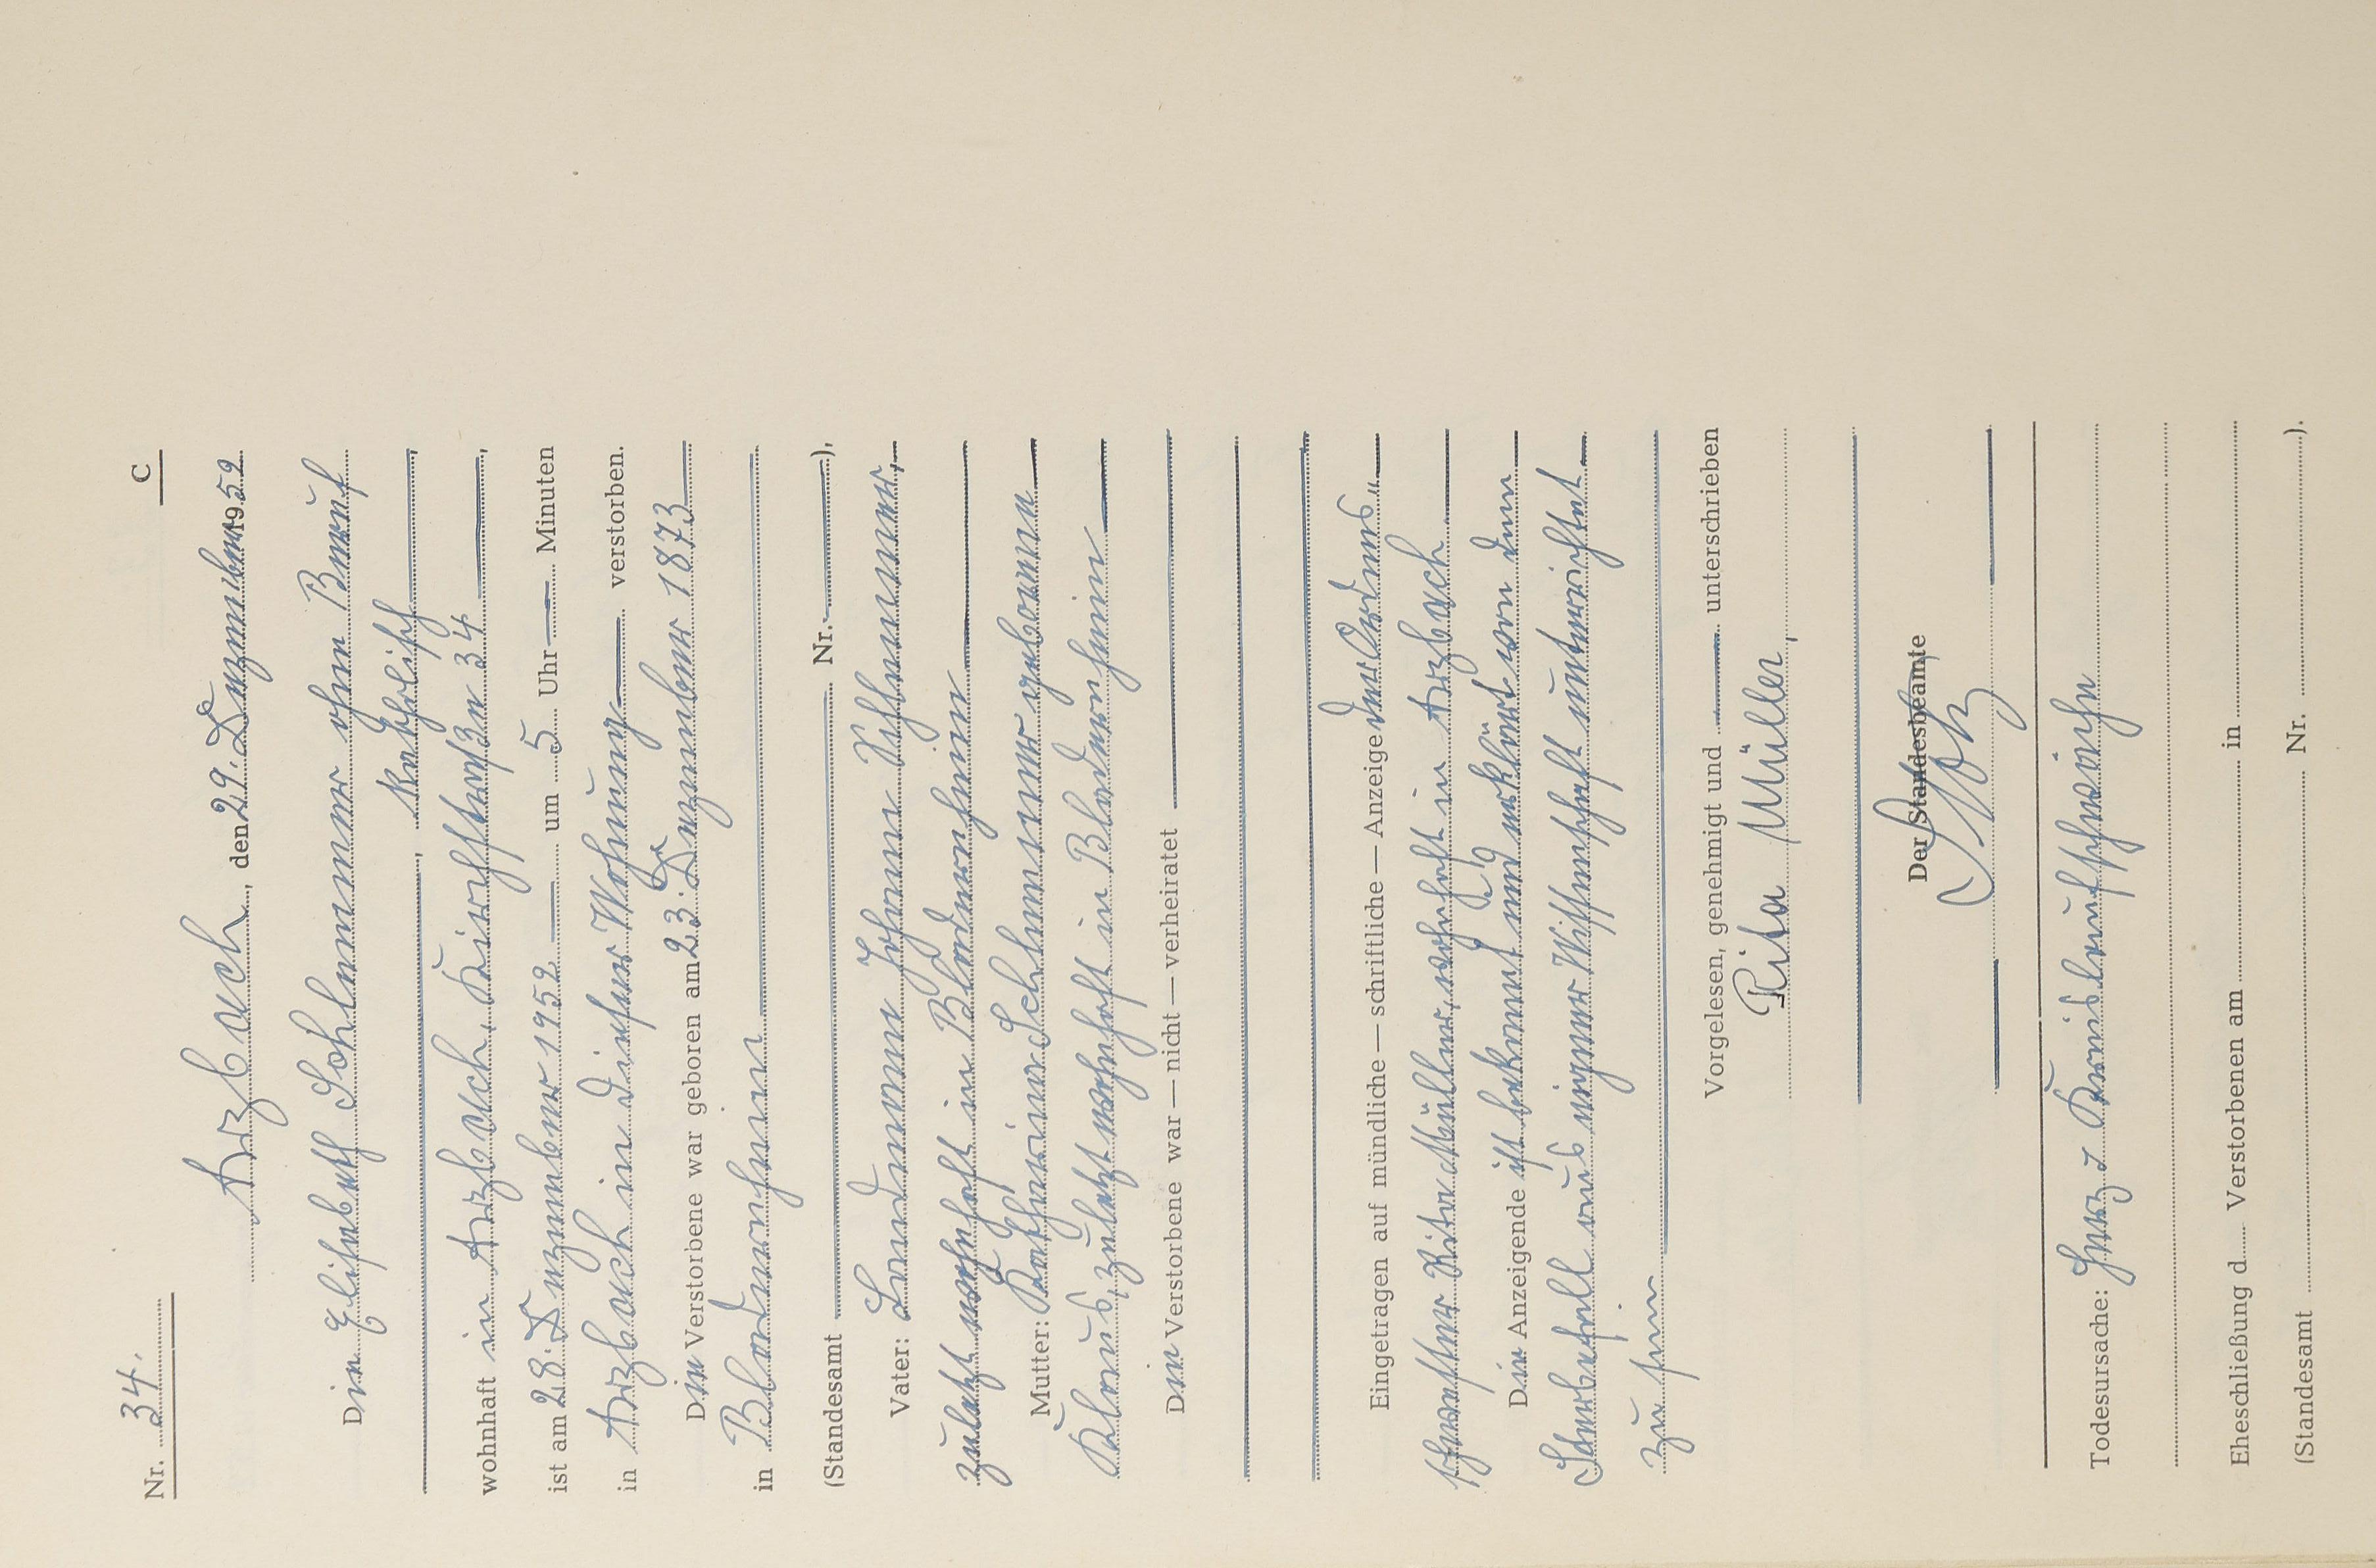 Nr. 34. C
Arzbach, den 29. Dezember 1952
Die Elisabeth Schlemmer ohne Beruf
, katholisch
wohnhaft in Arzbach, Kirchstraße 34,
ist am 28. Dezember 1952 um 5 Uhr Minuten
in Arzbach in dieser Wohnung verstorben.
Die Verstorbene war geboren am 23. Dezember 1873
in Bladernheim
(Standesamt Nr. ),
Vater: Landmann Johann Schlemmer,
zuletzt wohnhaft in Bladernheim
Mutter: Katharina Schlemmer geborene
Klaus, zuletzt wohnhaft in Bladernheim
Die Verstorbene war — nicht — verheiratet
Eingetragen auf mündliche — schriftliche — Anzeige der Ordens-
schwester Rita Müller, wohnhaft in Arzbach
Die Anzeigende ist bekannt und erklärt von dem
Sterbefall aus eigener Wissenschaft unterrichtet
zu sein
Vorgelesen, genehmigt und unterschrieben
Rita Müller,
Der Standesbeamte
Todesursache: Herz & Kreislaufschwäche
Eheschließung d Verstorbenen am in
(Standesamt Nr. ).